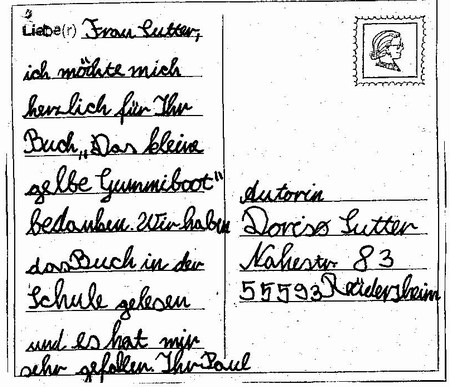 Liebe(r) Frau Sutter,
ich möchte mich
herzlich für Ihr
Buch „Das kleine
gelbe Gummiboot"
bedanken. Wir haben
das Buch in der
Schule gelesen
und es hat mir
sehr gefallen. Ihr Paul
Autorin
Doriso Sutter
Nahestr 83
55593 Rüdersheim